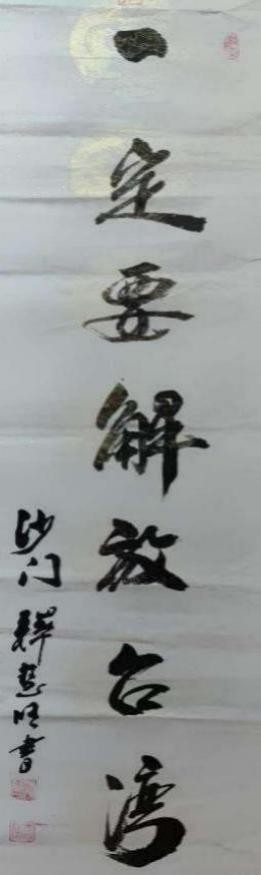 一定要解放台湾
沙门释慧明书